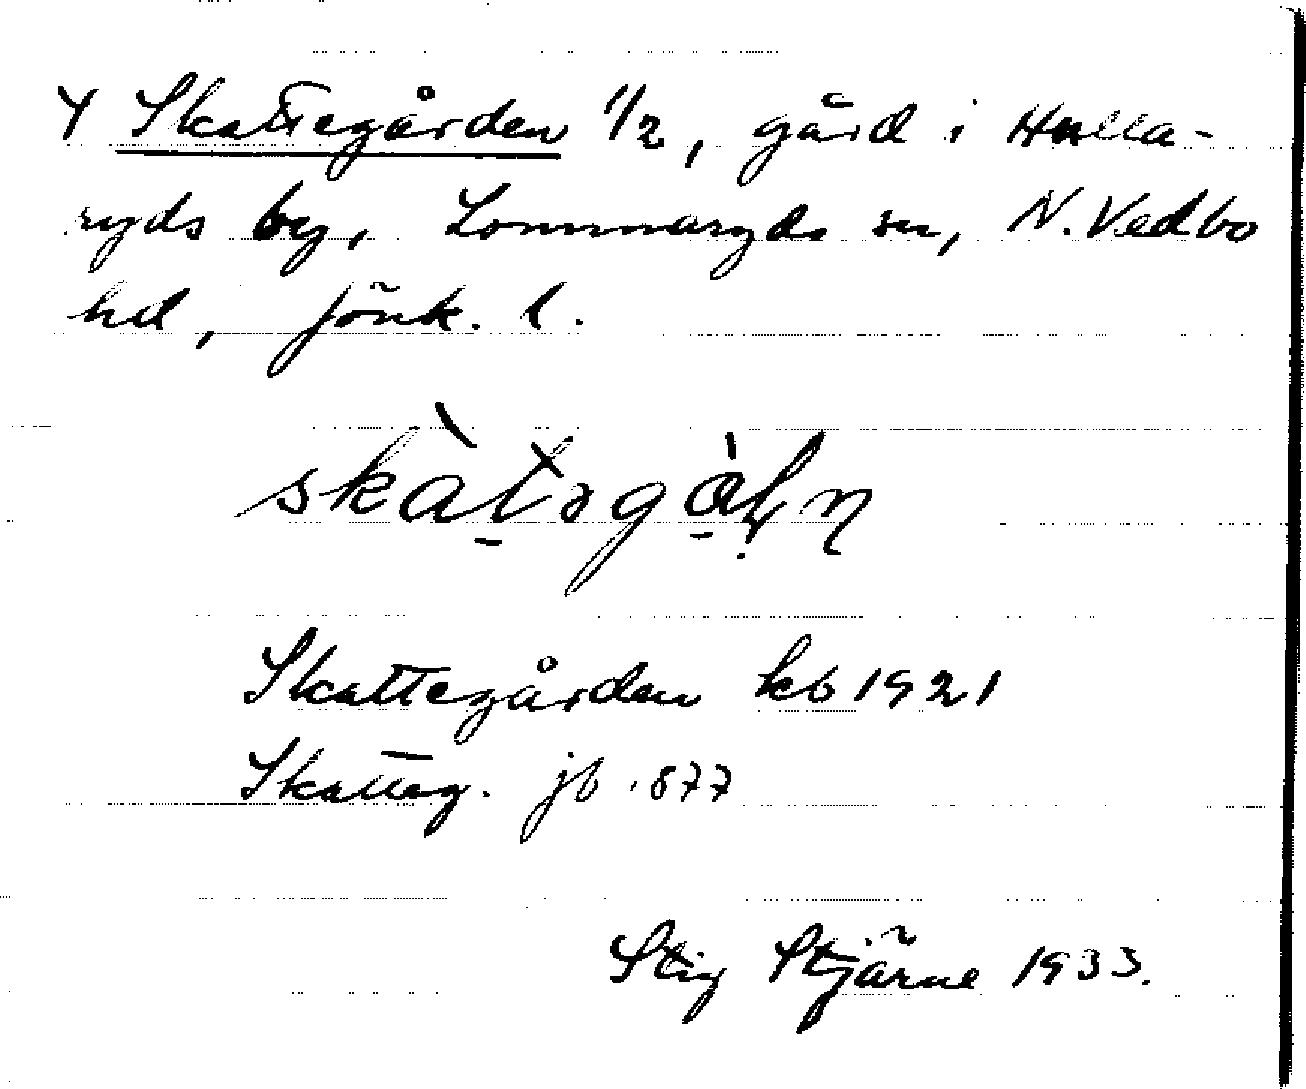 Y Skattegården 1/2, gård i Hulla-
ryds by, Lommaryds sn, N. Vedbo
hd, Jönk. l.
Skattegården kb 1921
Skatteg. jb 1877
Stig Stjärne 1933.